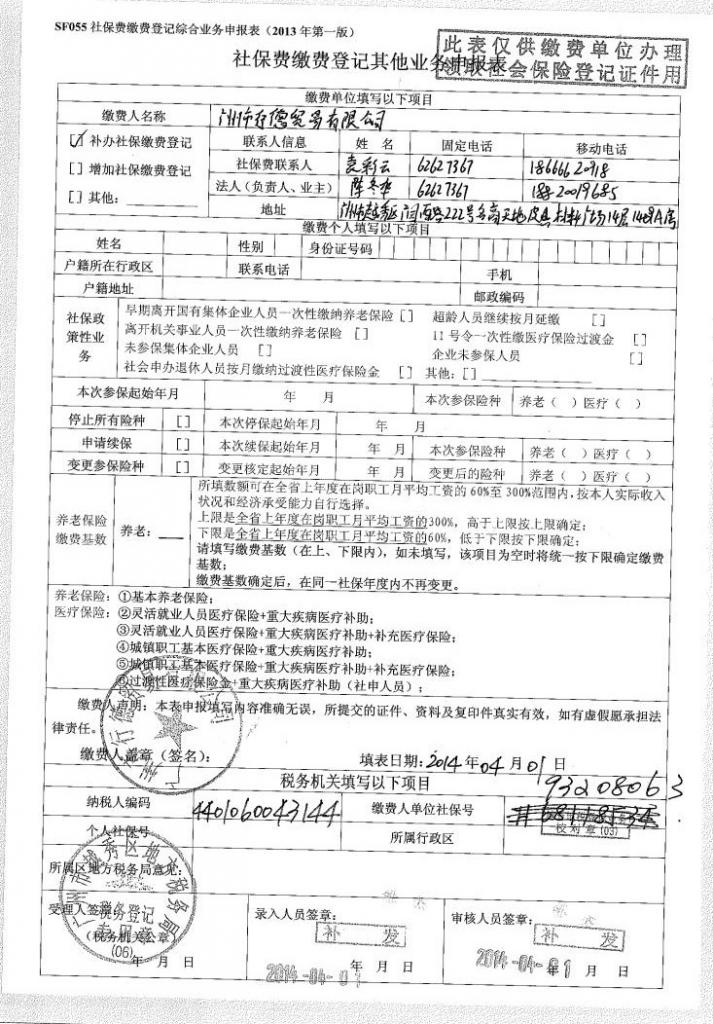 SF055 社保费缴费登记综合业务申报表（2013 年第一版）
此表仅供缴费单位办理
领取社会保险登记证件用
社保费缴费登记其他业务申报表
缴费单位填写以下项目
缴费人名称 广州市行德贸易有限公司
[√] 补办社保缴费登记 联系人信息 姓 名 固定电话 移动电话
[ ] 增加社保缴费登记 社保费联系人 麦彩云 62627367 18666620918
[ ] 其他：________ 法人（负责人、业主） 陈冬华 62627367 18820019685
地址 222号 14层
缴费个人填写以下项目
姓名 性别 身份证号码
户籍所在行政区 联系电话 手机
户籍地址 邮政编码
社保政策性业务
早期离开国有集体企业人员一次性缴纳养老保险 [ ] 超龄人员继续按月延缴 [ ]
离开机关事业人员一次性缴纳养老保险 [ ] 11 号令一次性缴医疗保险过渡金 [ ]
未参保集体企业人员 [ ] 企业未参保人员 [ ]
社会申办退休人员按月缴纳过渡性医疗保险金 [ ] 其他：[ ] ________
本次参保起始年月 年 月 本次参保险种 养老（ ）医疗（ ）
停止所有险种 [ ] 本次停保起始年月 年 月
申请续保 [ ] 本次续保起始年月 年 月 本次参保险种 养老（ ）医疗（ ）
变更参保险种 [ ] 变更核定起始年月 年 月 变更后的险种 养老（ ）医疗（ ）
养老保险缴费基数 养老：___
所填数额可在全省上年度在岗职工月平均工资的 60%至 300%范围内，按本人实际收入
状况和经济承受能力自行选择。
上限是全省上年度在岗职工月平均工资的300%，高于上限按上限确定；
下限是全省上年度在岗职工月平均工资的60%，低于下限按下限确定；
请填写缴费基数（在上、下限内），如未填写，该项目为空时将统一按下限确定缴费
基数；
缴费基数确定后，在同一社保年度内不再变更。
养老保险：①基本养老保险；
医疗保险：②灵活就业人员医疗保险+重大疾病医疗补助；
③灵活就业人员医疗保险+重大疾病医疗补助+补充医疗保险；
④城镇职工基本医疗保险+重大疾病医疗补助；
⑤城镇职工基本医疗保险+重大疾病医疗补助+补充医疗保险；
⑥过渡性医疗保险金+重大疾病医疗补助（社申人员）；
缴费人声明：本表申报填写内容准确无误，所提交的证件、资料及复印件真实有效，如有虚假愿承担法
律责任。
缴费人盖章（签名）： 填表日期：2014 年 04 月 01 日
税务机关填写以下项目
93208063
纳税人编码 4401060043144 缴费人单位社保号 68118534
校对章(03)
个人社保号 所属行政区
所属区地方税务局意见：
广州市越秀区地方税务局
税务登记
专用章
(06)
受理人签章： 录入人员签章： 审核人员签章：
补 发 补 发
（税务机关公章）
年 月 日 2014-04-01 年 月 日 2014-04-01 年 月 日